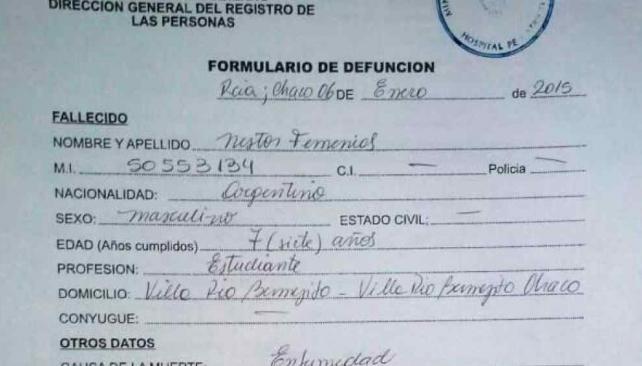 DIRECCION GENERAL DEL REGISTRO DE
LAS PERSONAS
HOSPITAL PE
FORMULARIO DE DEFUNCION
Rcia; Chaco 06 DE Enero de 2015
FALLECIDO
NOMBRE Y APELLIDO Nestor Femenias
M.I. 50553134 C.I. — Policia —
NACIONALIDAD: Argentino
SEXO: masculino ESTADO CIVIL: —
EDAD (Años cumplidos) 7 (siete) años
PROFESION: Estudiante
DOMICILIO: Villa Rio Bermejito - Villa Rio Bermejito Chaco
CONYUGUE: —
OTROS DATOS
CAUSA DE LA MUERTE: Enfermedad